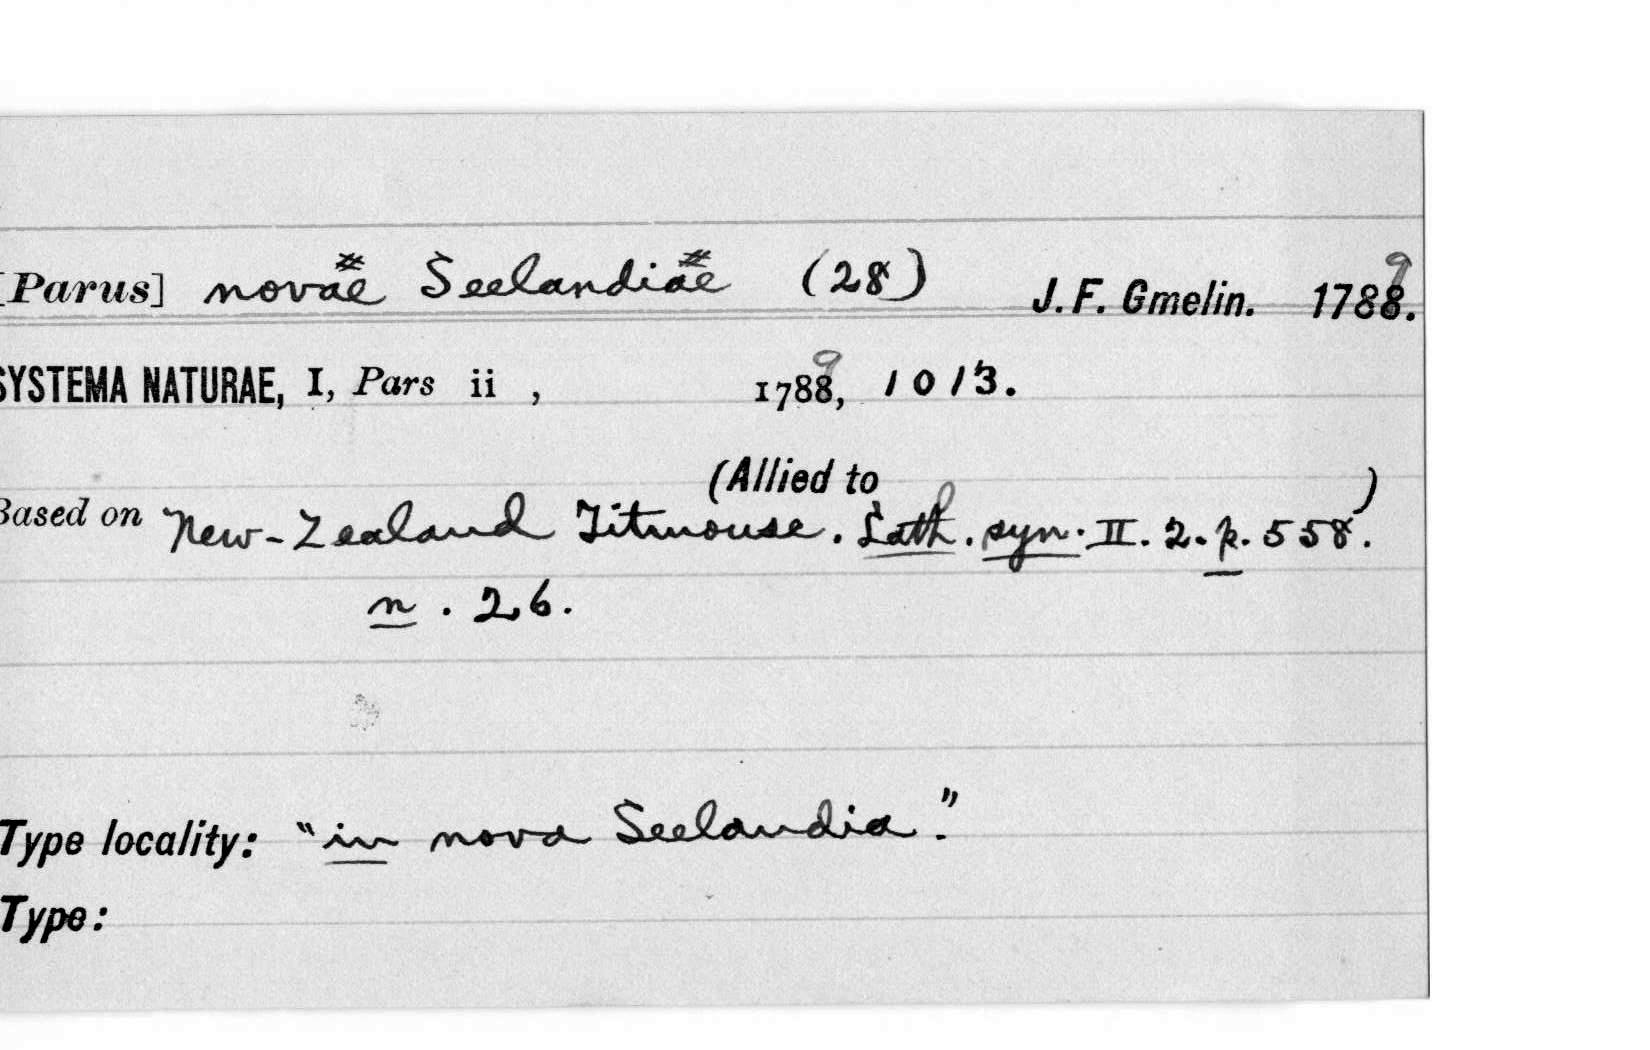 [Parus] novæ Seelandiæ (28) J. F. Gmelin. 1788. 9
SYSTEMA NATURAE, I, Pars ii , 1788, 9 1013.
(Allied to )
Based on New-Zealand Titmouse. Lath. syn. II. 2. p. 558.
n. 26.
Type locality: "in nova Seelandia."
Type: